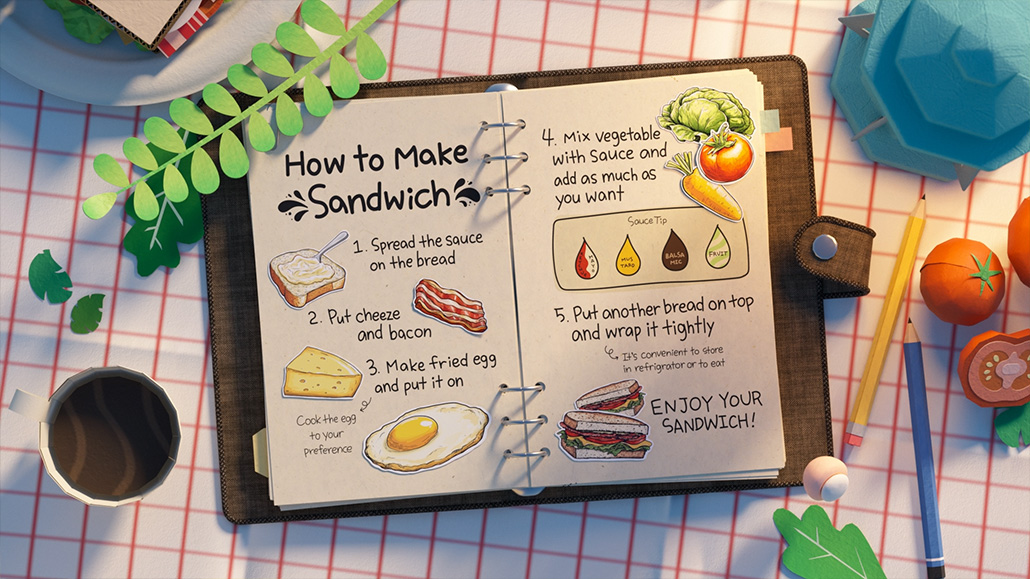 How to Make
Sandwich
1. Spread the sauce
on the bread
2. Put cheeze
and bacon
3. Make fried egg
and put it on
Cook the egg
to your
preference
4. Mix vegetable
with Sauce and
add as much as
you want
Sauce Tip
MUS
TARD
BALSA
MIC
5. Put another bread on top
and wrap it tightly
It's convenient to store
in refrigrator or to eat
ENJOY YOUR
SANDWICH!